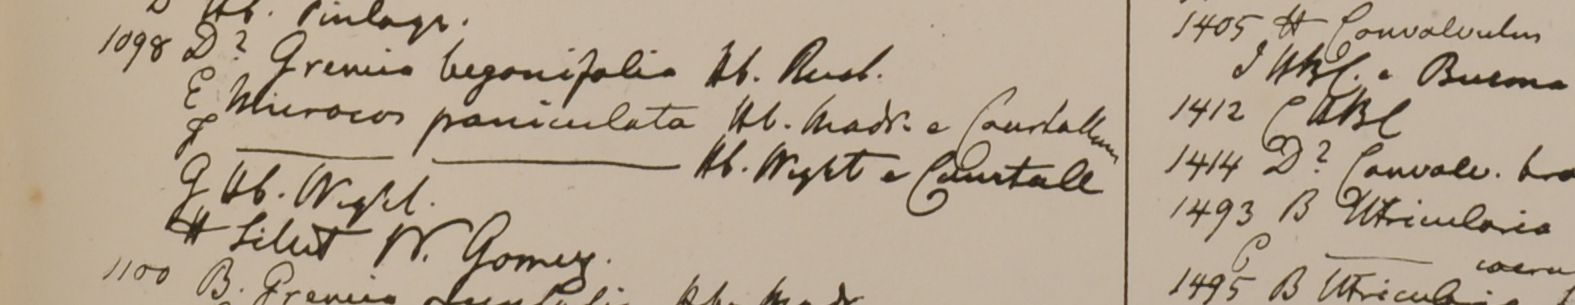 D Hb. Finlays.
1098 D? Grewia begonifolia Hb. Russ.
E Microcos paniculata Hb. Madr. e Courtallum
F ——— ——— Hb. Wight e Courtall
G Hb. Wight.
H Silhet W. Gomez.
1100 B. Grewia Hb. Madr
1405 H Convolvulus
I HBC. e Burma
1412 C HBC
1414 D? Convolv. bra
1493 B Utricularia
C ——— coeru
1495 B Utricularia